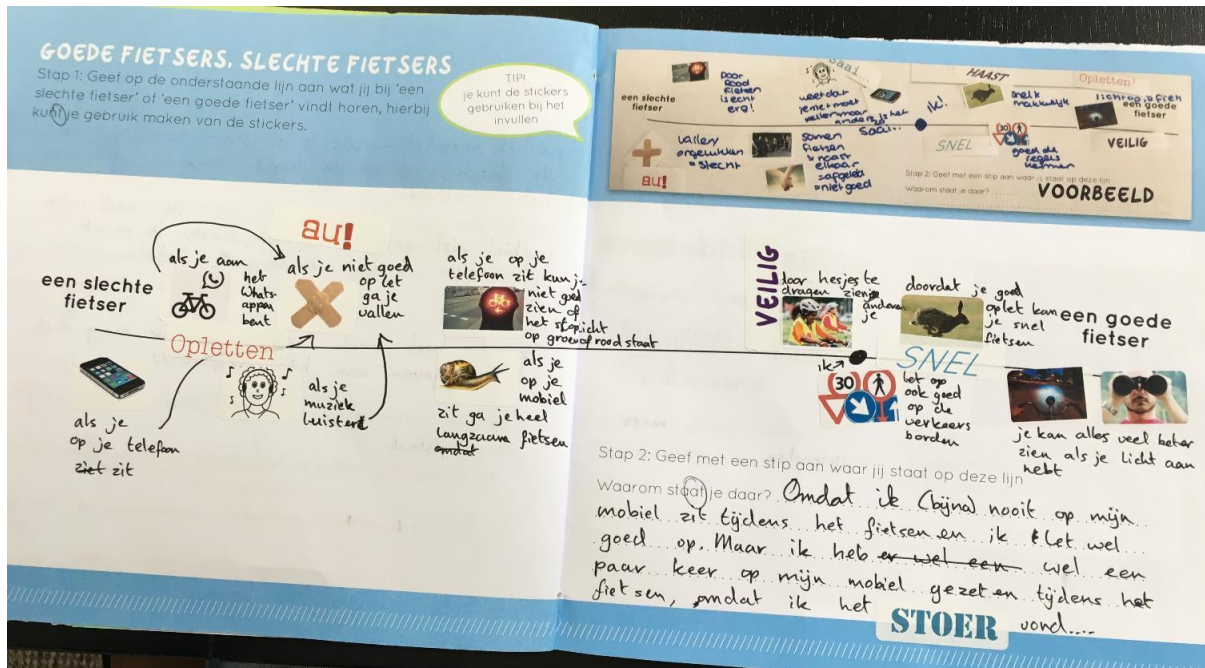 GOEDE FIETSERS, SLECHTE FIETSERS
Stap 1: Geef op de onderstaande lijn aan wat jij bij 'een
slechte fietser' of 'een goede fietser' vindt horen, hierbij
kunt je gebruik maken van de stickers.
TIP!
je kunt de stickers
gebruiken bij het
invullen
een slechte
fietser
Door
Rood
fietsen
is echt
erg!
Saai...
weet dat
je niet moet
anders is het
saai...
ik!
HAAST
snel
makkelijk
Opletten!
een goede
fietser
vallen
ongelukken
= slecht
au!
samen
fietsen
naast
elkaar
= afgeleid
= niet goed
30
SNEL
goed de
regels
kennen
VEILIG
Stap 2: Geef met een stip aan waar jij staat op deze lijn
Waarom sta je daar?
VOORBEELD
een slechte
fietser
als je aan
het
Whats-
appen
bent
au!
als je niet goed
op let
ga je
vallen
als je op je
telefoon zit kun j-
niet goed
zien of
het stoplicht
op groen of rood staat
Opletten
als je
op je telefoon
ziet zit
als je
muziek
luistert
als je
op je
mobiel
zit ga je heel
langzaam fietsen
omdat
VEILIG
door hesjes te
dragen zien je
anderen
je
doordat je goed
oplet kan
je snel
fietsen
een goede
fietser
ik
SNEL
30
let op
ook goed
op de
verkeers
borden
je kan alles veel beter
zien als je licht aan
hebt
Stap 2: Geef met een stip aan waar jij staat op deze lijn
Waarom staat je daar? Omdat ik (bijna) nooit op mijn
mobiel zit tijdens het fietsen en ik let wel
goed op. Maar ik heb er wel een wel een
paar keer op mijn mobiel gezeten tijdens het
fietsen, omdat ik het STOER vond....